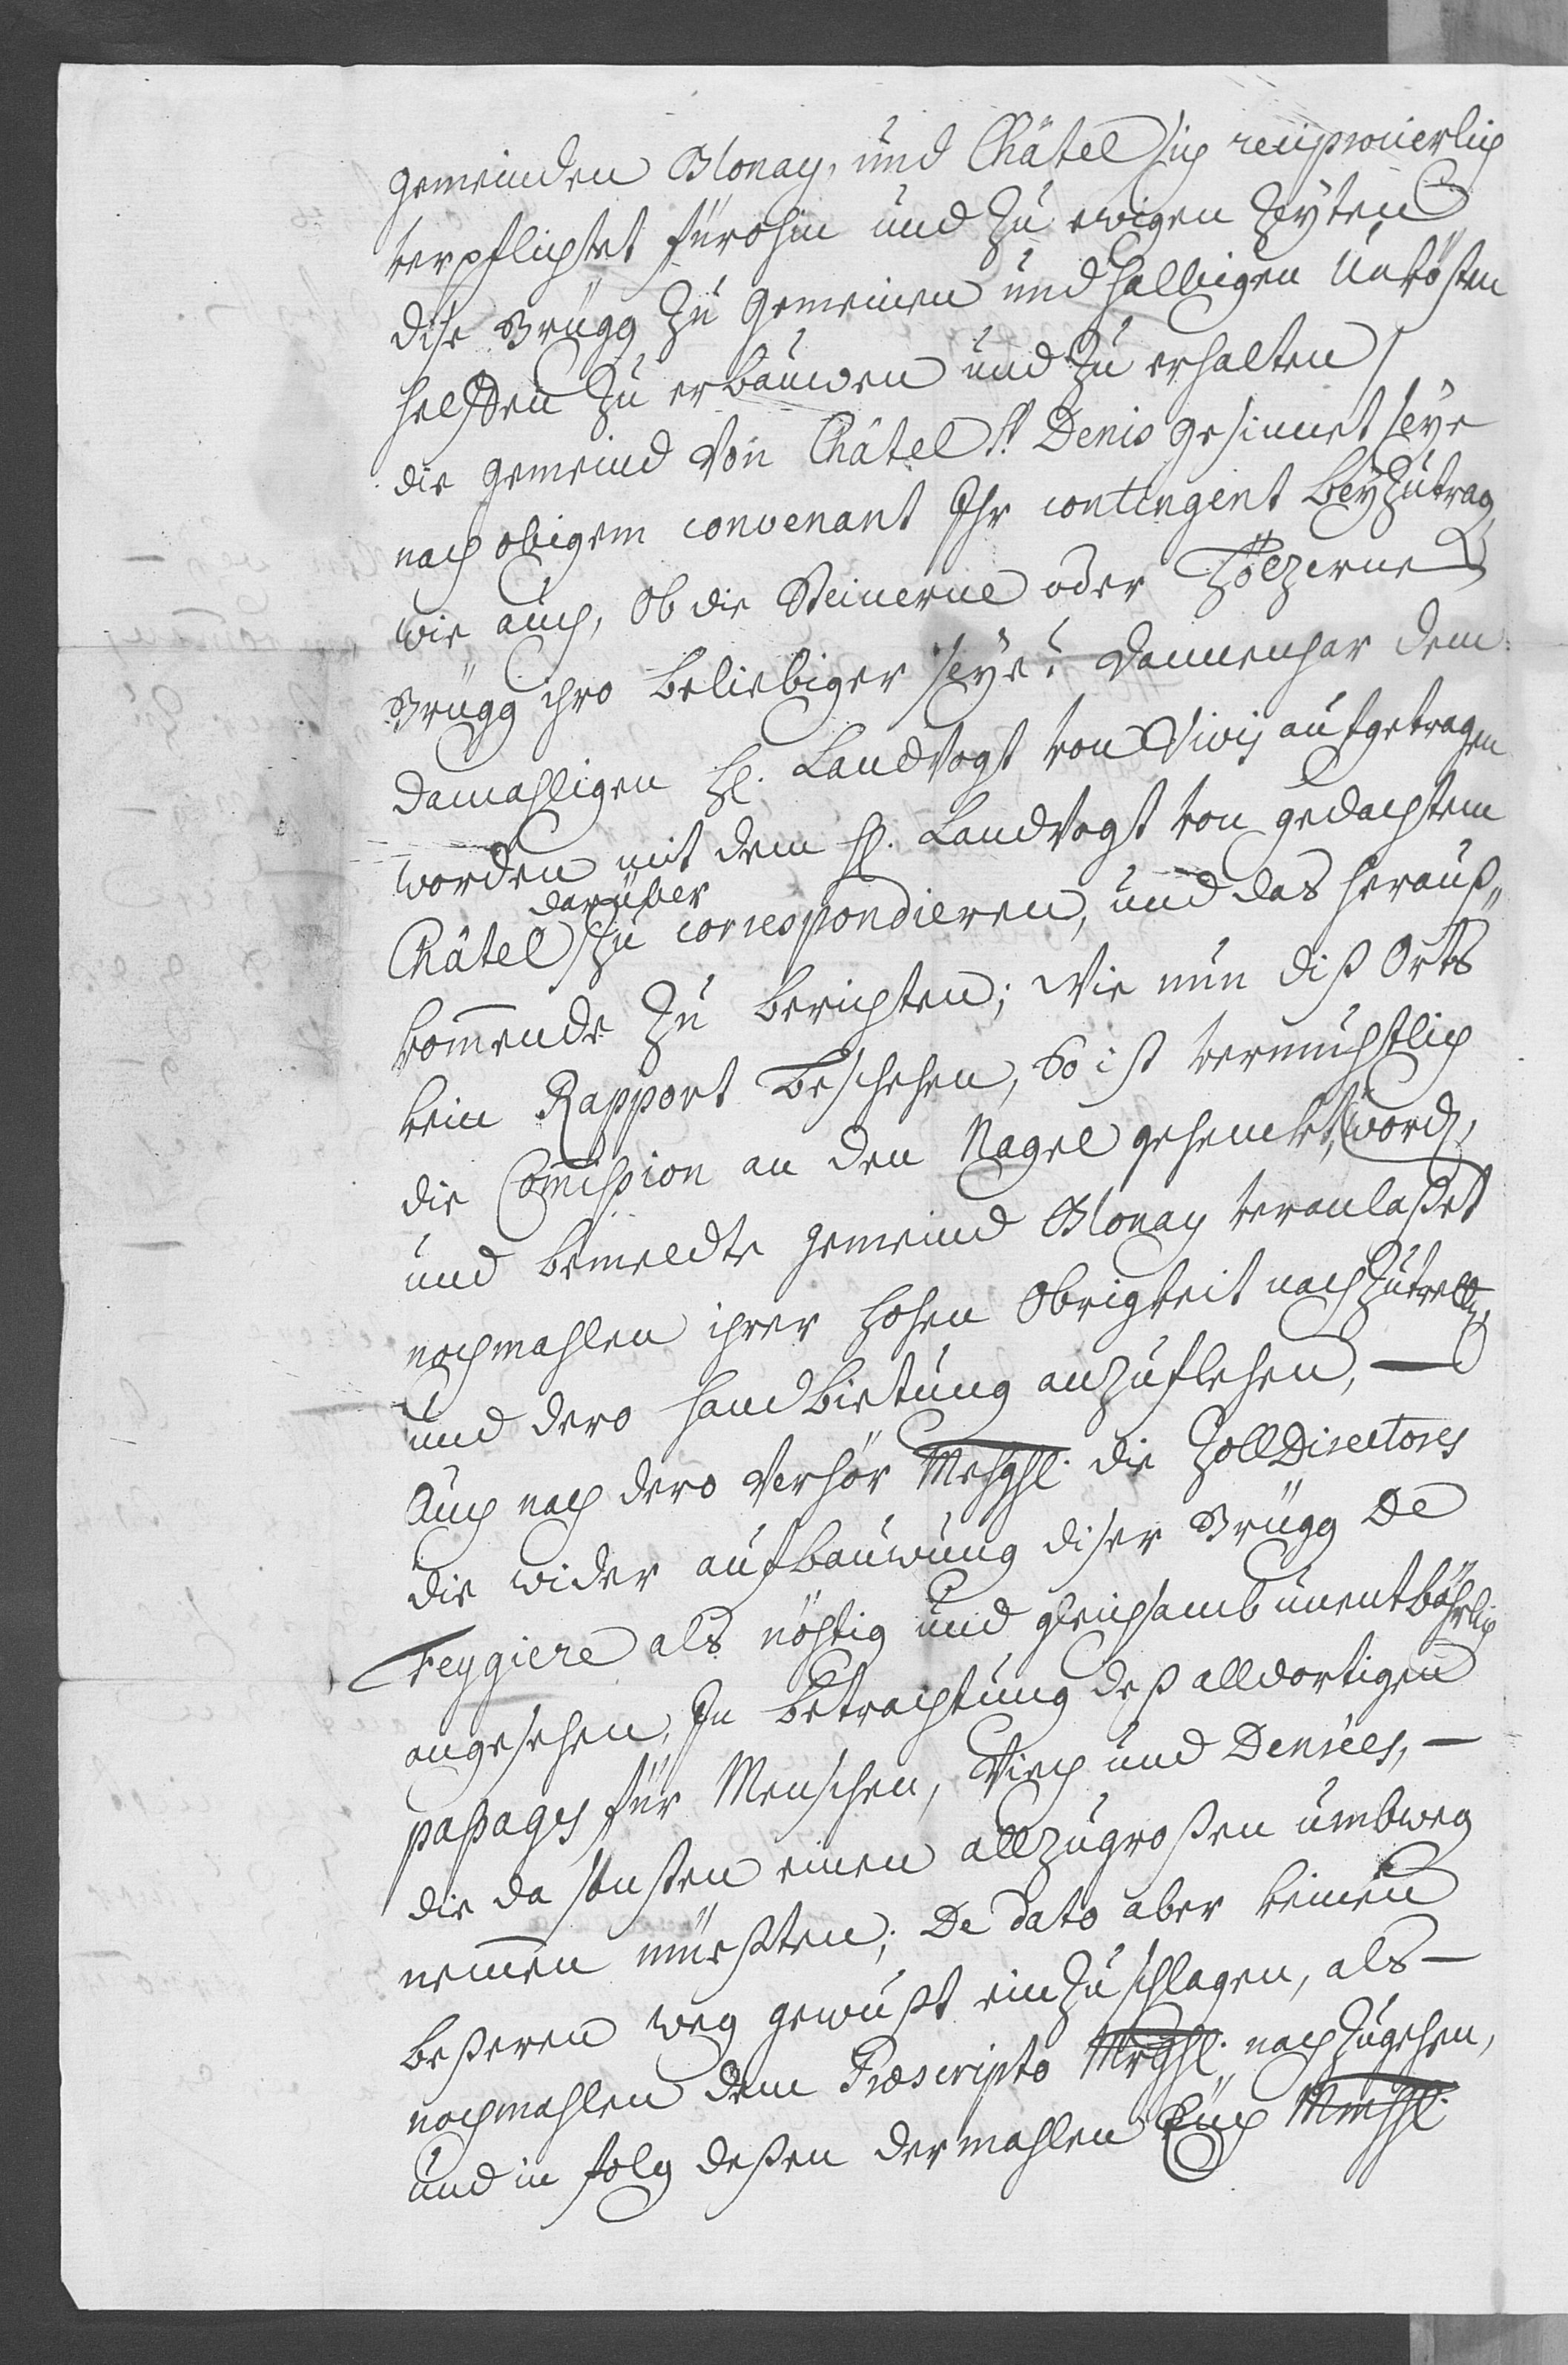 gemeinden Blonay, und Châtel sich reciprocierlich
verpflichtet fürohin und zu ewigen Zyten
dise Brügg zu gemeinen und halbigen Unkösten
helffen zu erbauwen und zu erhalten /
die gemeind von Châtel St. Denis gesinnet seye
nach obigem convenant Ihr contingent beyzutrag,
wie auch, Ob die Steinerne oder Hölzerne
Brügg ihro beliebiger seye? dannenhar dem
damahligen H. Landvogt von Vivis aufgetragen
worden mit dem H. Landvogt von gedachtem
darüber
Châtel zu correspondieren, und das herauß„
kom̅ende zu berichten; Wie nun diß Orts
kein Rapport beschehen, So ist vermuhtlich
die Com̅ißion an den Nagel gehenckt word,
und bemeldte gemeind Blonay veranlaßet
nochmahlen ihrer hohen Obrigkeit nachzutretten,
und dero handbietung anzuflehen, —
Auch nach dero Verhör MehgHl. die ZollDirectores
die wider aufbauwung diser Brügg De
Feygiere als nöhtig und gleichsamb unentböhrlich
angesehen, In betrachtung deß alldortigen
paßages für Menschen, Viech und Denrées, —
die da sonsten einen allzugroßen umbweg
nem̅en müeßten; De dato aber keinen
beßeren weg gewußt einzuschlagen, als —
nochmahlen dem Præscripto MrgHl. nachzugehen,
und in folg deßen dermahlen Euch MmhHl.